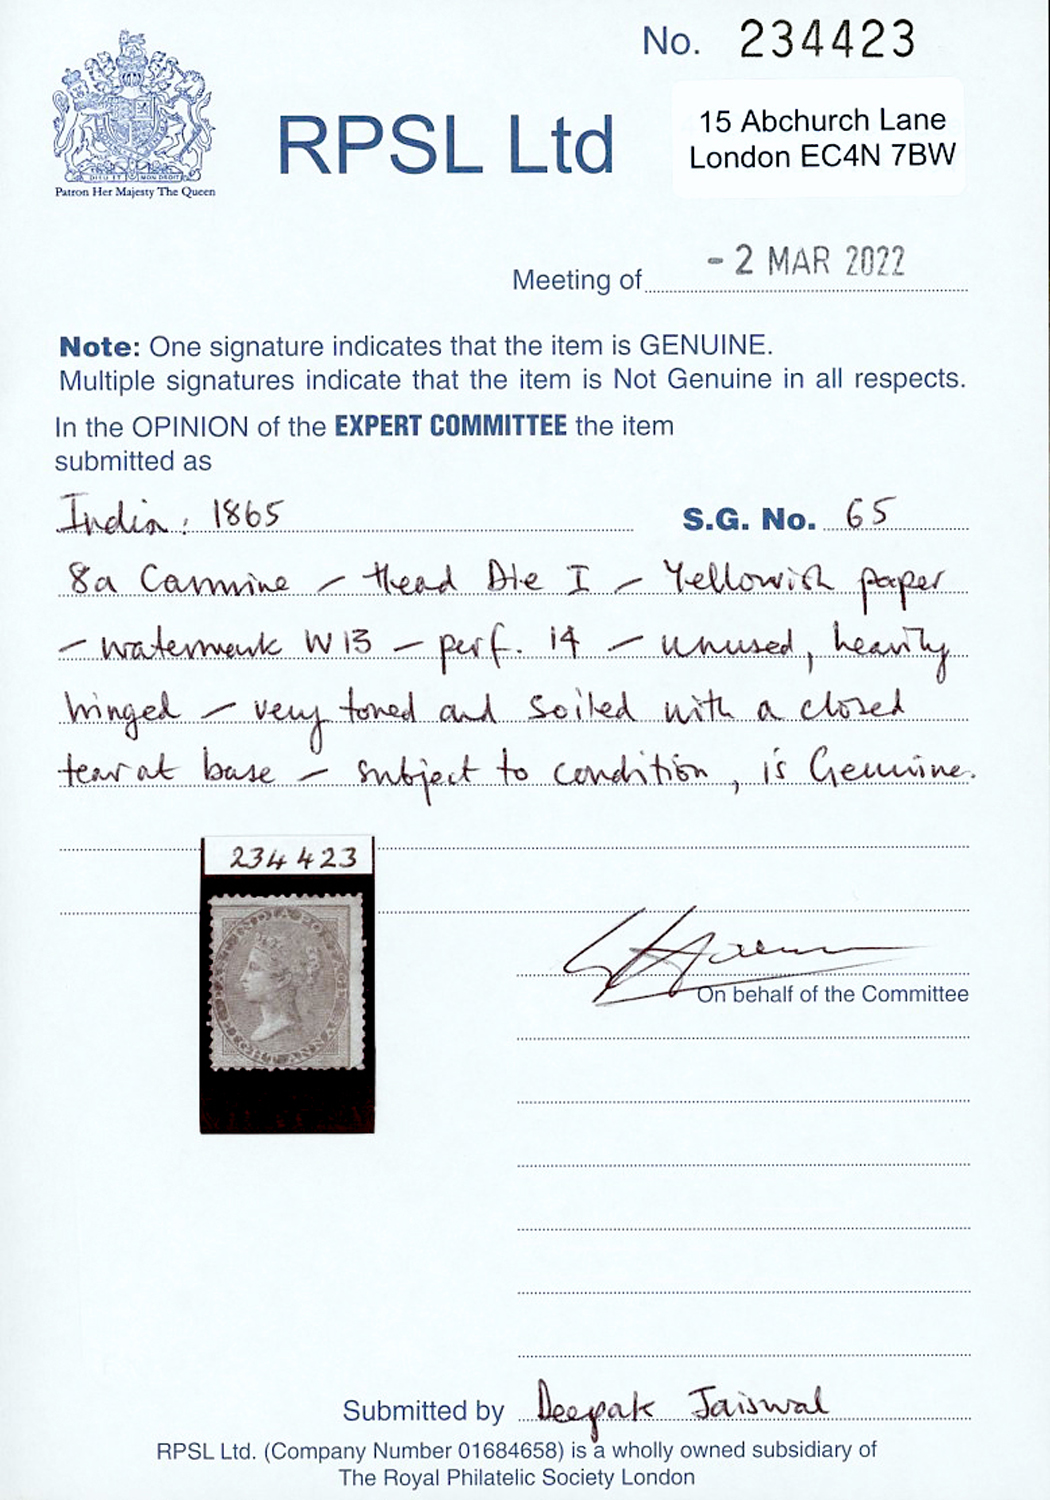 No. 234423
RPSL Ltd
15 Abchurch Lane
London EC4N 7BW
DIEU ET MON DROIT
Patron Her Majesty The Queen
Meeting of - 2 MAR 2022
Note: One signature indicates that the item is GENUINE.
Multiple signatures indicate that the item is Not Genuine in all respects.
In the OPINION of the EXPERT COMMITTEE the item
submitted as
India: 1865 S.G. No. 65
8a Carmine - Head Die I - Yellowish paper
- watermark W13 - perf. 14 - unused, heavily
hinged - very toned and soiled with a closed
tear at base - subject to condition, is Genuine.
234423
EAST INDIA POSTAGE
EIGHT ANNAS
On behalf of the Committee
Submitted by Deepak Jaiswal
RPSL Ltd. (Company Number 01684658) is a wholly owned subsidiary of
The Royal Philatelic Society London